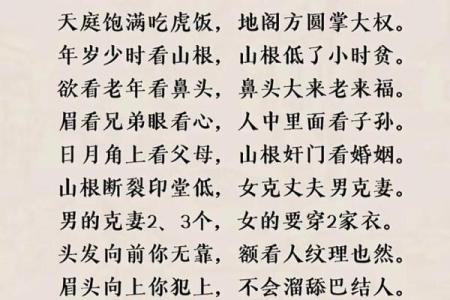 天庭饱满吃虎饭，地阁方圆掌大权。
年岁少时看山根，山根低了小时贫。
欲看老年看鼻头，鼻头大来老来福。
眉看兄弟眼看心，人中里面看子孙。
日月角上看父母，山根奸门看婚姻。
山根断裂印堂低，女克丈夫男克妻。
男的克妻2、3个，女的要穿2家衣。
头发向前你无靠，额看人纹理也然。
眉头向上你犯上，不会溜舔巴结人。